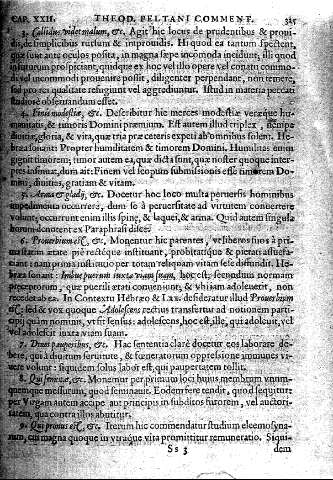 CAP. XXII. THEOD. PELTANI COMMENT. 325
3. Callidus videt malum, &c. Agit hic locus de prudentibus & provi-
dis, de simplicibus rursum & improuidis. Hi quod ea tantum spectent,
quæ sunt ante oculos posita, in magna sæpe incomoda incidunt, illi quod
in futurum prospiciant, quidque ex hoc vel illo opere vel constitui commo-
di vel incommodi prouenire possit, diligenter perpendant, non temere,
sed pro rei qualitate refugiunt vel aggrediuntur. Istud in materia peccati
studiosè obseruandum esset.
4. Finis modestiæ, &c. Describitur hic merces modestiæ veræque hu-
manitatis, & timoris Domini præmium. Est autem illud triplex, nempe
diuitiæ, gloria, & vita, quæ tria præ ceteris expeti ab omnibus solent. He-
bræa sonant: Propter humilitatem & timorem Domini. Humilitas enim
gignit timorem; timor autem ea, quæ dicta sunt, quæ noster quoque inter-
pres insinuat, dum ait: Finem vel scopum submissionis esse timorem Do-
mini, diuitias, gratiam & vitam.
5. Arma & gladij, &c. Docetur hoc loco multa peruersis hominibus
impedimenta occurrere, dum se à peruersitate ad virtutem conuertere
volunt; occurrunt enim illis spinæ, & laquei, & arma. Quid autem singula
horum denotent ex Paraphrasi disce.
6. Prouerbium est, &c. Monentur hic parentes, vel liberos suos à pri-
ma statim ætate piè rectèque instituant, probitatisque & pietati assuefa-
ciant: nam prima institutio per totam reliquam vitam sese diffundit. He-
bræa sonant: Imbue puerum iuxta viam suam, hoc est, secundum normam
præceptorum, quæ puerili ætati conueniunt; & vbi iam adoleuerit, non
recedet ab ea. In Contextu Hebræo & Lxx. desideratur illud Prouerbium
est: sed & vox quoque Adolescens rectius transfertur ad notionem parti-
cipij quam nominis, vt sit sensus: adolescens, hoc est, ille, qui adolescit, vel
vel adolescit iuxta viam suam.
7. Diues pauperibus, &c. Hac sententia clarè docetur eos laborare de-
bere, qui à diuitum seruitute, & fœneratorum oppressione immunes vi-
uere volunt: siquidem solus labor est, qui paupertatem tollit.
8. Qui seminat, &c. Monemur per primum loci huius membrum vnum-
quemque messurum, quod seminauit. Eodem fere tendit, quod sequitur:
per Virgam autem accipe aut principis in subditos furorem, vel auctori-
tatem, qua contra illos abutitur.
9. Qui pronus est, &c. Iterum hic commendatur studium eleemosyna-
rum, cui magna quoque in vtraque vita promittitur remuneratio. Siqui-
Ss 3 dem